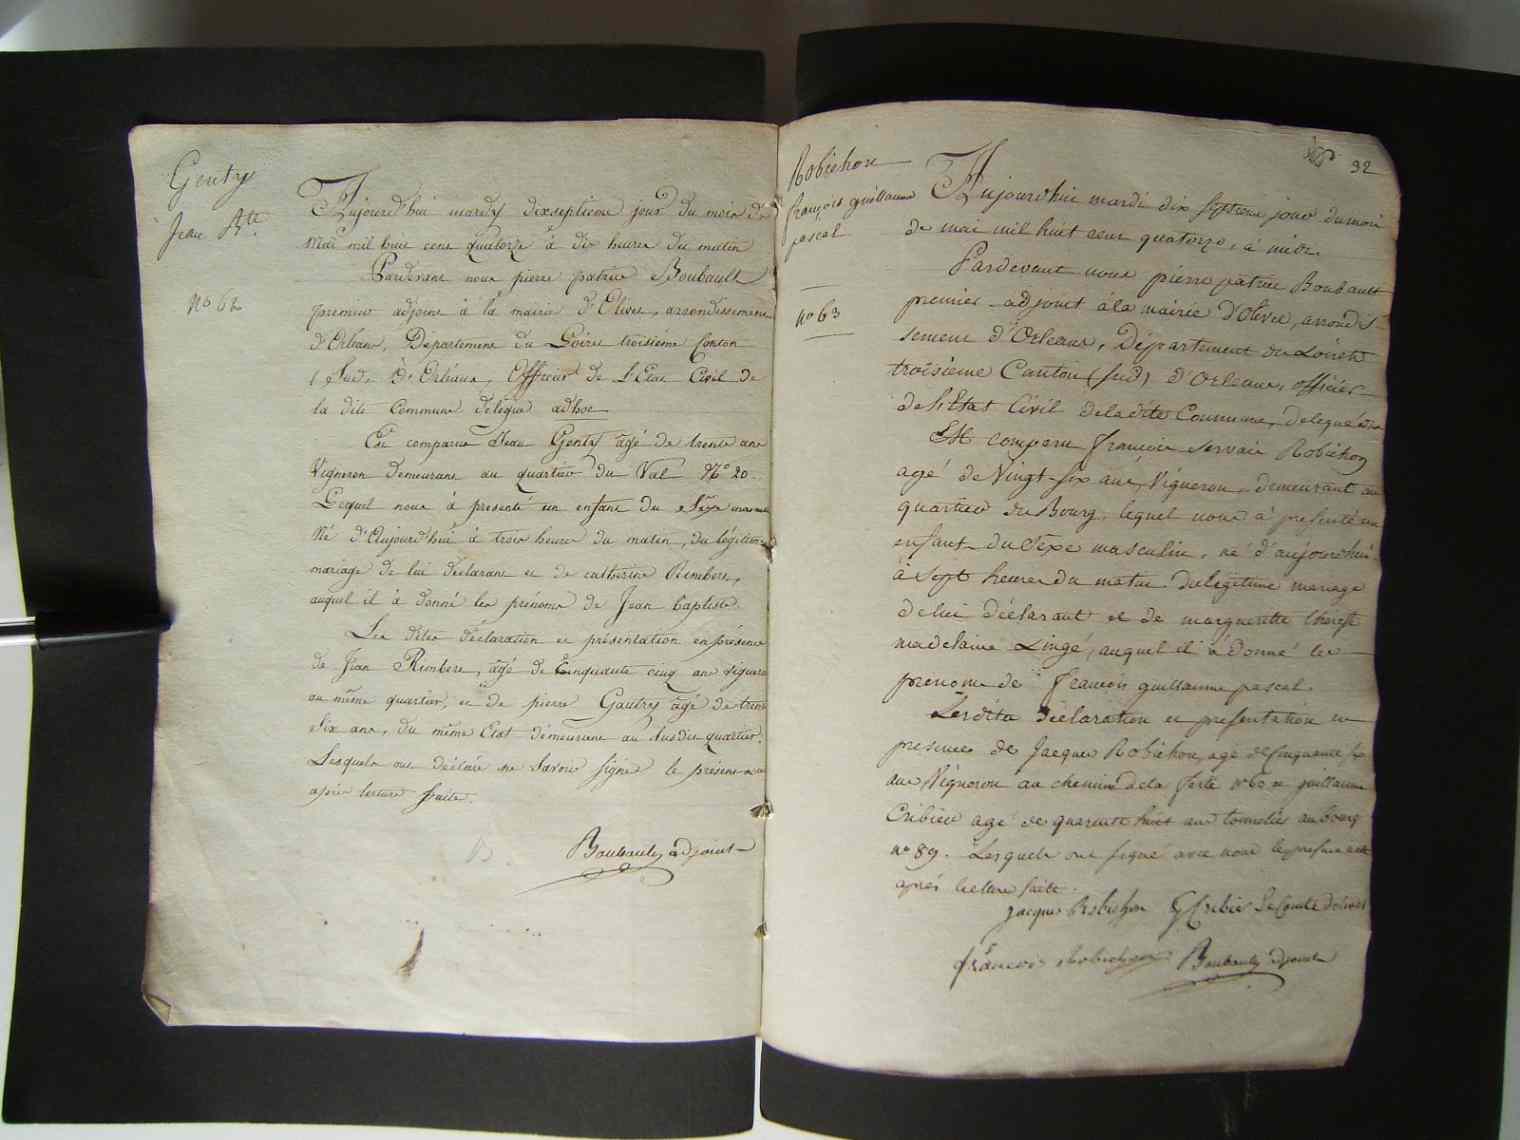 Gentry
Jean Bte.
no 62
Aujourd'hui mardy dixseptieme jour du mois de
mai mil huit cent quatorze à dix heures du matin
Pardevant nous pierre patrice Boubault
premier adjoint à la mairie d'Olivet, arrondissement
d'Orléans, Département du Loiret troisième Canton
(Sud) d'Orléans, Officier de L'Etat Civil de
la dite Commune délégué adhoc
Est comparu Jean Gentry âgé de trente ans
Vigneron demeurant au quartier du Val No 20.
Lequel nous à présenté un enfant du Sexe masculin
Né d'Aujourd'hui à trois heures du matin, du légitime
mariage de lui déclarant et de catherine Rimbert,
auquel il à donné les prénoms de Jean baptiste.
Les dites déclaration et présentation en présence
de Jean Rimbert, âgé de Cinquante cinq ans vigneron
au même quartier, et de pierre Gautry âgé de trente
Six ans, du même Etat demeurant au Susdit quartier.
Lesquels ont déclaré ne Savoir Signer le présent acte
après lecture faite.
Boubault adjoint
32
Robichon
françois guillaume
pascal
no 63
Aujourd'hui mardi dix septieme jour du moi
de mai mil huit cent quatorze, à midi.
Pardevant nous pierre patrice Boubault
premier adjoint à la mairie d'Olivet, arrondis-
sement d'Orléans, Département du Loiret
troisième Canton (sud) d'Orléans, officier
de l'Etat Civil de la dite Commune, delegué
Est comparu françois servais Robichon
agé de Vingt-six ans, Vigneron, demeurant au
quartier du Bourg, lequel nous à présenté un
enfant du Sexe masculin, né d'aujourd'hui
à Sept heures du matin du légitime mariage
de lui déclarant et de margueritte therese
madelaine Lingé, auquel il à donné les
prenoms de françois guillaume pascal.
Les dites déclaration et présentation en
presence de Jacques Robichon, agé de Cinquante six
ans, Vigneron au chemin de la ferté no 60 et guillaume
Cribier agé de quarante huit ans tonnelier au bourg
no 89. Lesquels ont signé avec nous le présent acte
après lecture faite.
Jacques Robichon G Cribier
françois Robichon Boubault adjoint